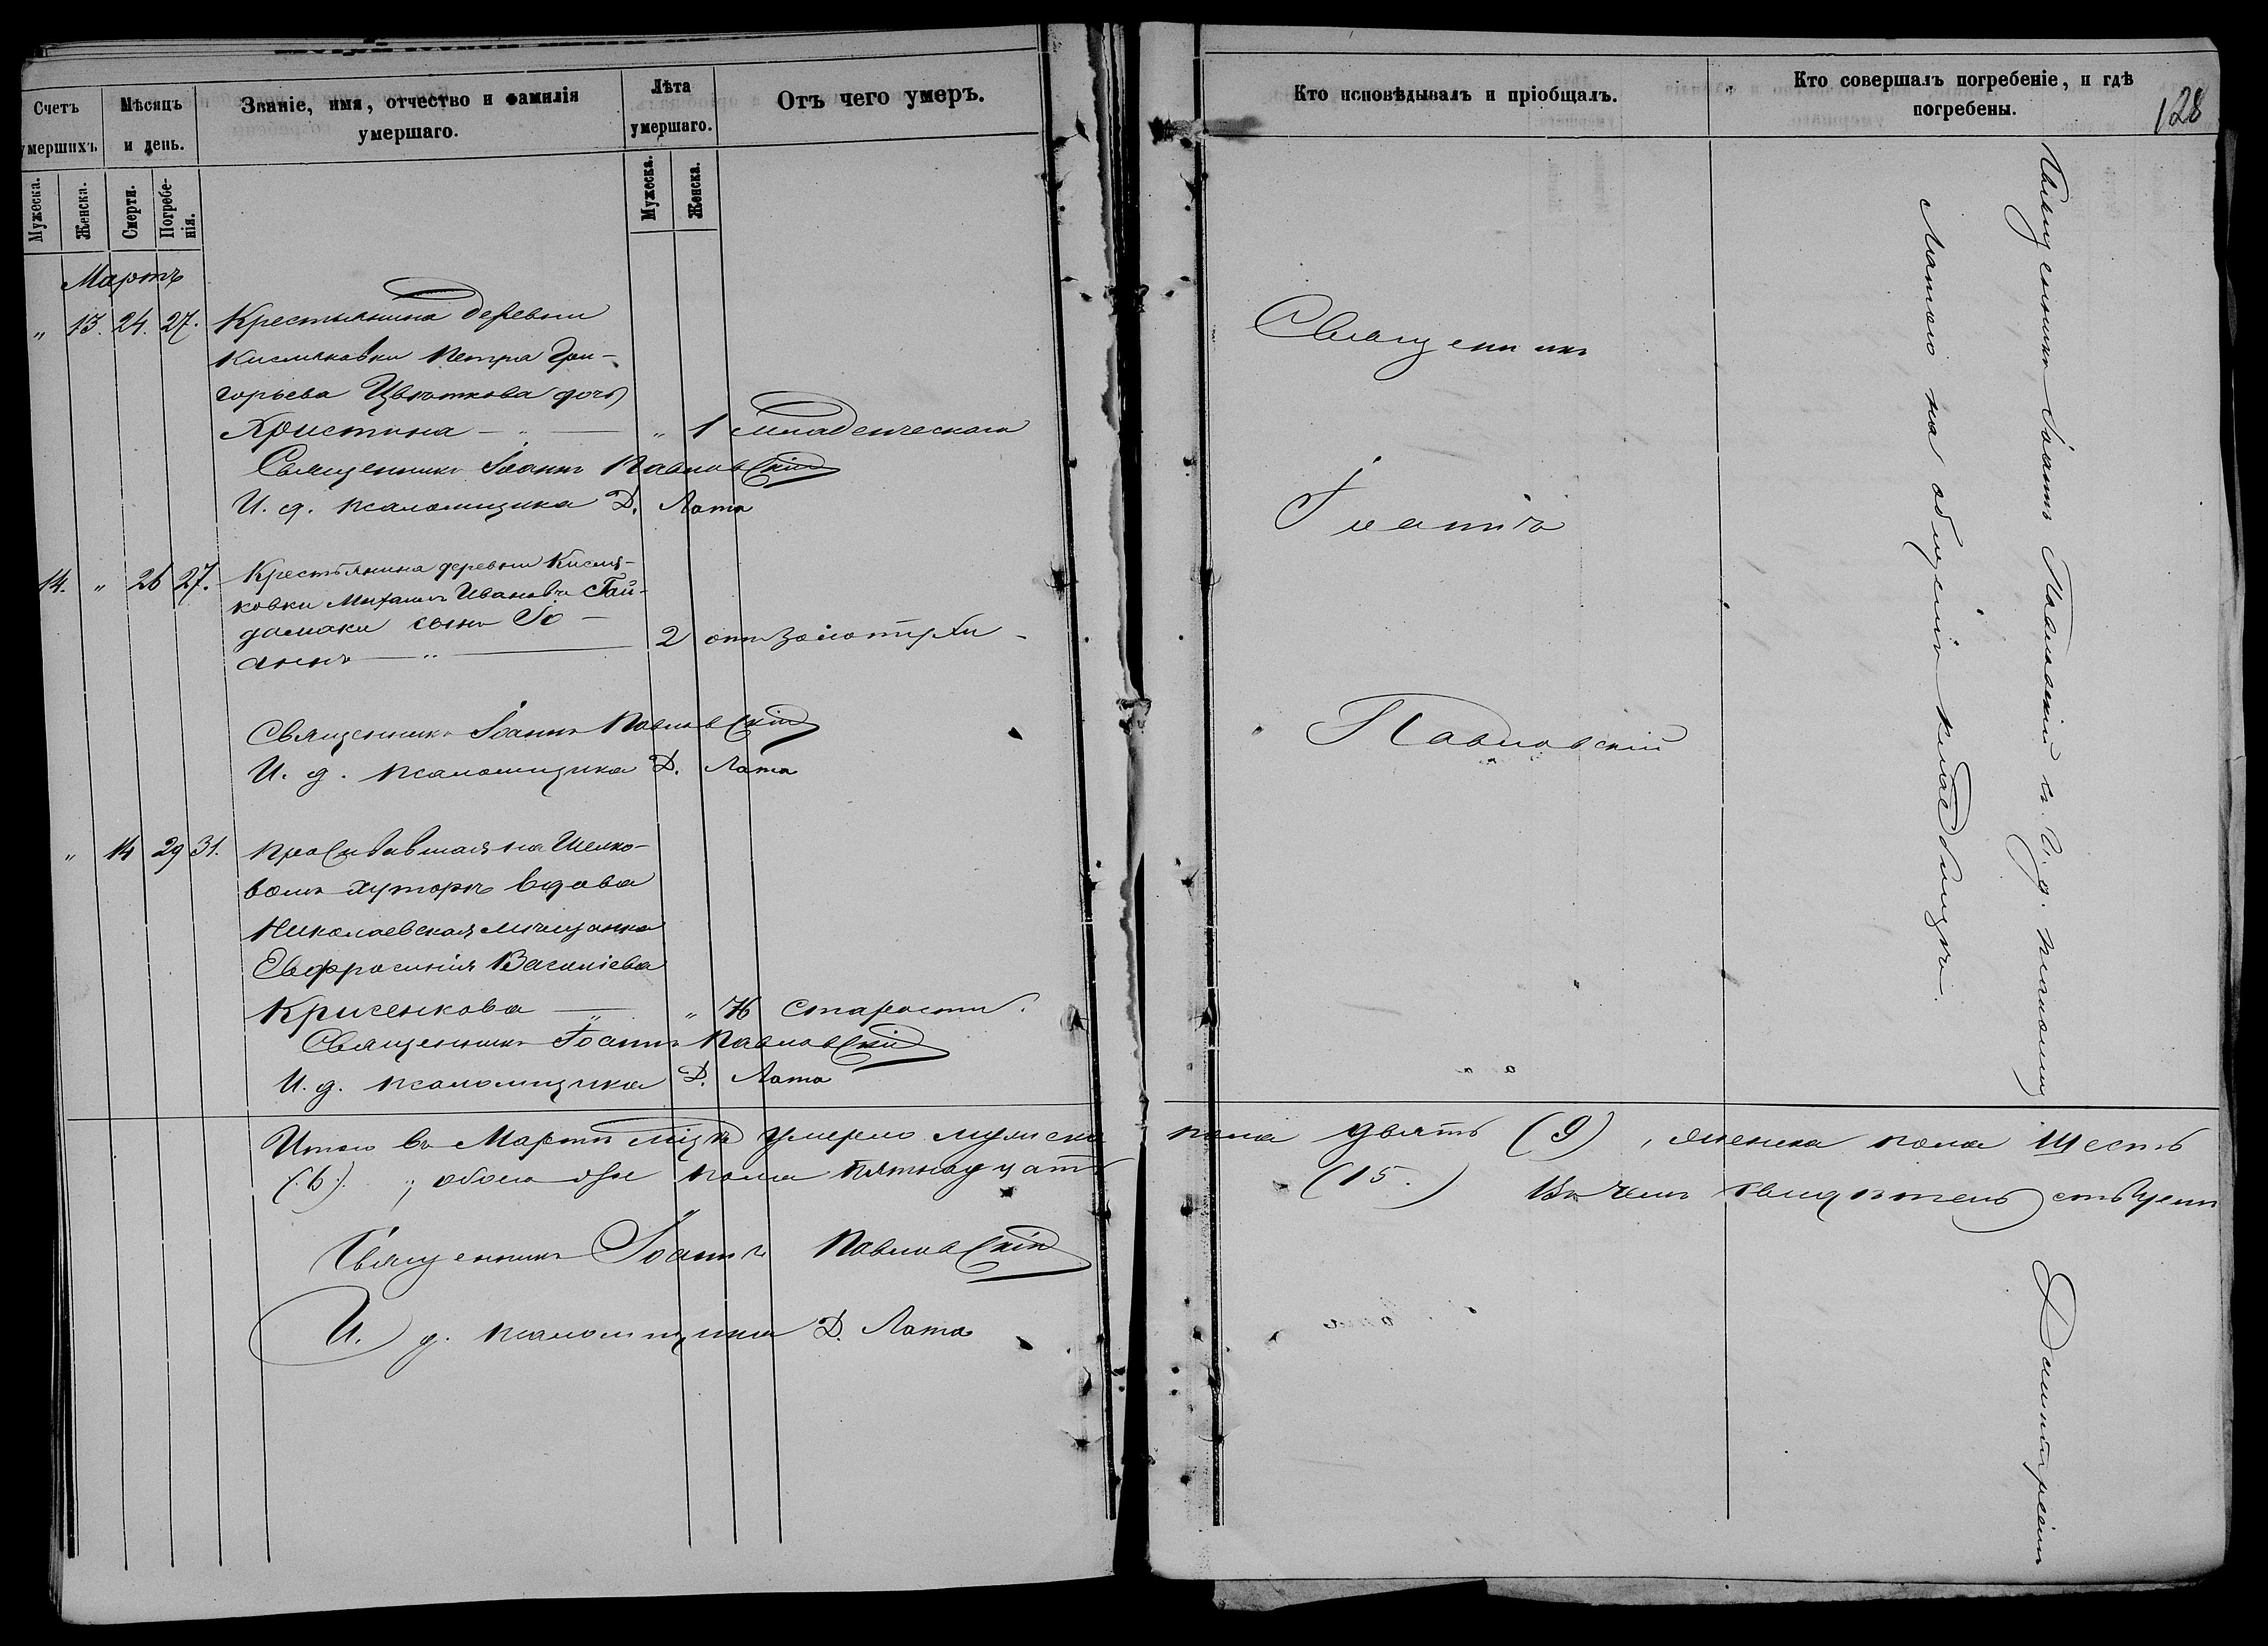 Счетъ умершихъ
Мѣсяцъ и день.
Званіе, имя, отчество и фамилія умершаго.
Лѣта умершаго.
Отъ чего умеръ.
Мужеска.
Женска.
Смерти.
Погребенія.
Мужеска.
Женска.
Мартъ
„ 13. 24. 27. Крестьянина деревни
Кисляковки Петра Гри-
горьева Цвѣткова дочь
Христина — „ — „ 1 младенческаго
Священникъ Іоаннъ Павловскій
И. д. псаломщика Д. Лата
14. „ 26 27. Крестьянина деревни Кисля-
ковки Михаила Иванова Гай-
дамаки сынъ Іо-
аннъ — „ — 2 отъ золотухи
Священникъ Іоаннъ Павловскій
И. д. псаломщика Д. Лата
„ 14 29 31. Проживавшая на Шелко-
вомъ хуторѣ вдова
Николаевская мѣщанка
Евфросинія Василіева
Крисенкова — „ 76 старости.
Священникъ Іоаннъ Павловскій
И. д. псаломщика Д. Лата
Итого въ Мартѣ мцѣ умерло мужска пола двять (9), женска пола шесть
(6); обоего пола пятнадцать (15.) Въ чемъ свидѣтельствуемъ
Священникъ Іоаннъ Павловскій
И. д. псаломщика Д. Лата
Кто исповѣдывалъ и пріобщалъ.
Кто совершалъ погребеніе, и гдѣ погребены.
128
Священникъ
Іоаннъ
Павловскій
Священникъ Іоаннъ Павловскій съ И. д. псаломщ Димитріемъ
Латою на общемъ кладбищѣ.